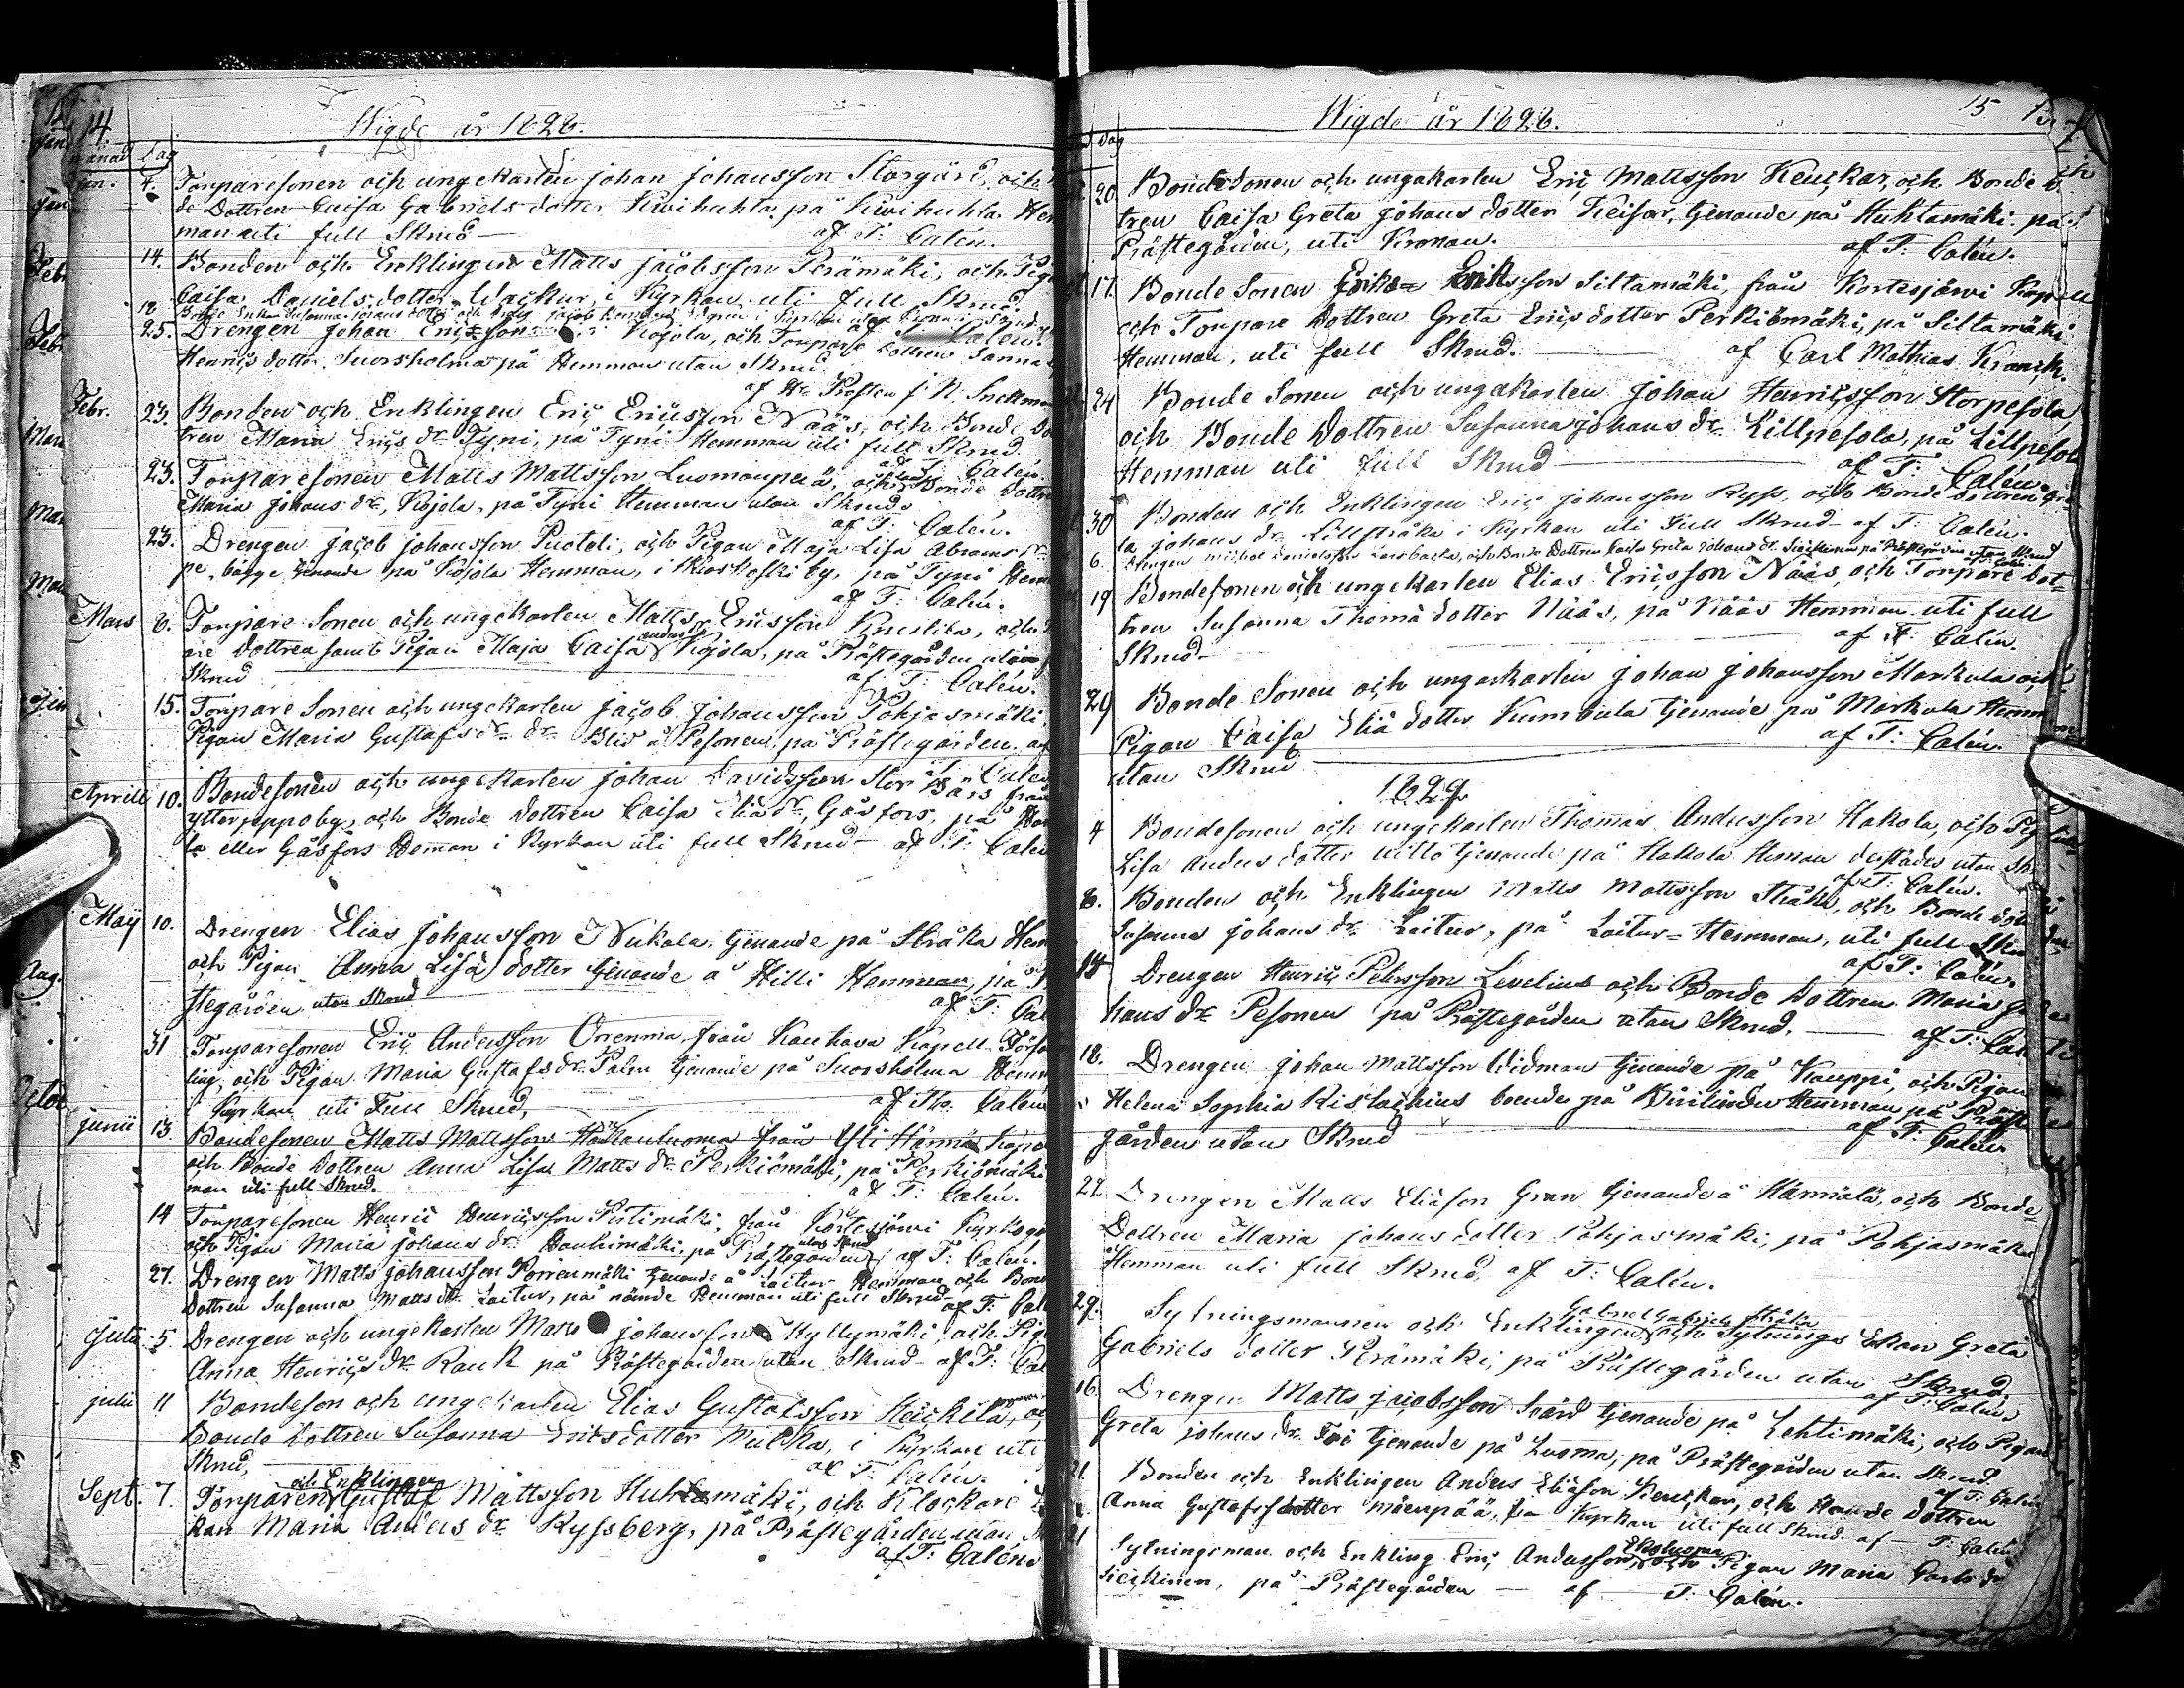 14
Wigde år 1828.
månad Dag
Jan. 4. Torparesonen och ungekarlen Johan Johansson Storgård, och
de Dottren Caisa Gabriels dotter Kivihuhta på Kivihuhta Hem
man uti full Skrud — af T: Calén.
14. Bonden och Enklingen Matts Jacobsson Perämäki, och Pig
Caisa Daniels dotter Wackur, i Kyrkan uti full Skrud
af T: Calén.
25. Drengen Johan Ericsson Kojola, och Torpare Dottren Sanna
Henrics dotter Suorsholma på Hemmans utan Skrud
af Hr Prosten J. N. Snellman
Febr. 23. Bonden och Enklingen Eric Ericsson Nääs, och Bonde Dot
tren Maria Erics dr Tyni, på Tyni Hemman uti full Skrud.
af T: Calén.
23. Torparesonen Matts Mattsson Luomanperä, och Bonde Dottre
Maria Johans dr, Kojola, på Tyni Hemman utan Skrud.
af T: Calén.
23. Drengen Jacob Johansson Puoteli, och Pigan Maja Lisa Abrams dr
pe, bägge tjenande på Kojola Hemman, i by, på Tyni Hem
af T: Calén.
Mars 6. Torpare Sonen och ungekarlen Matts Ericsson och
are Dottren samt Pigan Maja Caisa Anders dr Kojola, på Prästegården utan
Skrud — af T: Calén.
15. Torpare Sonen och ungekarlen Jacob Johansson Pohjasmäki,
Pigan Maria Gustafs dr Blid å Pesonen, på Prästegården. af
T: Calén
Aprill 10. Bondesonen och ungekarlen Johan Davidsson Stor Bärs från
ytterjeppo by, och Bonde Dottren Caisa Eliæ dr, Gåsfors, på
la eller Gåsfors Hemman i Kyrkan uti full Skrud — af T: Calén
Maij 10. Drengen Elias Johansson Nikala, tjenande på Stråka Hem
och Pigan Anna Lisa dotter tjenande å Hilli Hemman, på P
stegården utan Skrud — af T: Cal
31 Torparesonen Eric Andersson Orrenmaa från Kauhava Kapell Försa
ling, och Pigan Maria Gustafs dr Palm tjenande på Suorsholma Hemm
i Kyrkan uti Full Skrud, — af Th. Calén
Junii 13. Bondesonen Matts Mattsson från Yli Härmä Kape
och Bonde Dottren Anna Lisa Matts dr Perkiömäki, på Perkiömäki
man uti full Skrud. af T: Calén.
14 Torparesonen Henric Henricsson Pertimäki, från Kortesjärvi
och Pigan Maria Johans dr på Prästegården utan Skrud af T: Calén.
27. Drengen Matts Johansson Porrenmäki tjenande å Laitur Hemman, och Bond
Dottren Susanna Matts dr Laitur, på nämde Hemman uti full Skrud — af T: Cal
Julii 5 Drengen och ungekarlen Matts Johansson Myllymäki, och Pig
Anna Henrics dr Rauk på Prästegården utan Skrud — af T: Cal
Julii 11 Bondeson och ungekarlen Elias Gustafsson Heickilä, oc
Bonde Dottren Susanna Erics dotter Kulcka, i Kyrkan uti
Skrud, — af T: Calén.
Sept. 7. Torparen och Enklingen Gustaf Mattsson Huhtamäki, och Klockare
kan Maria Anders dr Ryssberg, på Prästegården utan
af T: Calén
Wigde år 1828.
15
Dag
20 Bondesonen och ungakarlen Eric Mattsson Keuckar, och Bonde D
tren Caisa Greta Johans dotter Keisar, tjenande på Huhtamäki. på
Prästegården, uti Kronan. af T: Calén.
17. Bonde Sonen Eriksson Siltamäki, från Kortesjärvi Kapell
och Torpare Dottren Greta Erics dotter Perkiömäki, på Siltamäki
Hemman, uti full Skrud. — af Carl Mathias Kranck.
24 Bonde Sonen och ungakarlen Johan Henricsson Storpesola,
och Bonde Dottren Susanna Johans dr Lillpesola, på Lillpesol
Hemman uti full Skrud — af T: Calén.
30 Bonden och Enklingen Eric Johansson Ryss, och Bonde Dottren Gre
ta Johans dr Lillstråka i Kyrkan uti Full Skrud — af T: Calén.
6. Drengen Michel Danielsson och Bonde Dottren Caisa Greta Johans dr på Prästegården utan Skrud
19 Bondesonen och ungekarlen Elias Ericsson Nääs, och Torpare Dot=
tren Susanna Thomä dotter Nääs, på Nääs Hemman uti full
Skrud — af T: Calén.
29 Bonde Sonen och ungakarlen Johan Johansson Markula och
Pigan Caisa Eliä dotter Kumbula tjenande på Markula Hemm
utan Skrud — af T: Calén.
1829
4 Bondesonen och ungekarlen Thomas Andersson Hakola, och Pig
Lisa Anders dotter Uitto tjenande på Hakola Heman derstädes utan Sk
af T: Calén.
8. Bonden och Enklingen Matts Mattsson Stråka, och Bonde Dot
Susanna Johans dr Laitur, på Laitur=Hemman, uti full Skru
af T: Calén.
14 Drengen Henric Petersson Levelius och Bonde Dottren Maria Jo
hans dr Pesonen på Prästegården utan Skrud. — af T: Cal
18. Drengen Johan Mattsson Widman tjenande på Kauppi, och Pigan
Helena Sophia Ristachius boende på Hemman på Präste
gården utan Skrud af T: Calén.
22 Drengen Matts Eliäson Gran tjenande å Härmälä, och Bonde=
Dottren Maria Johans dotter Pohjasmäki, på Pohjasmäki
Hemman uti full Skrud, af T: Calén.
29. Sytningsmannen och Enklingen Gabriel Gabriels Stråka och Sytnings Enkan Greta
Gabriels dotter Perämäki, på Prästegården utan Skrud.
af T: Calén
16. Drengen Matts Jacobsson Svärd tjenande på Lehtimäki, och Pigan
Greta Johans dr Foi tjenande på Luoma, på Prästegården utan Skrud.
af T: Calén
21. Bonden och Enklingen Anders Eliäson Keuckar, och Bonde Dottren
Anna Gustafs dotter Mäenpää, på Kyrkan uti full Skrud. af — T: Calén
21 Sytningsman och Enkling Eric Andersson och Pigan Maria Carls dr
Sieckinen, på Prästegården — af — T: Calén.